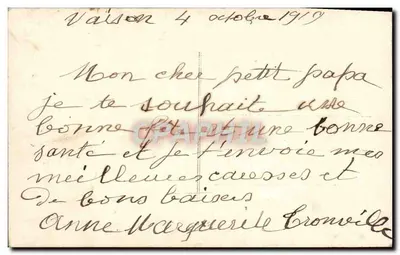 Vaison 4 octobre 1919
Mon cher petit papa
je te souhaite une
bonne fête et une bonne
santé et je t'envoie mes
meilleures caresses et
de bons baisers
Anne Marguerite Tronville